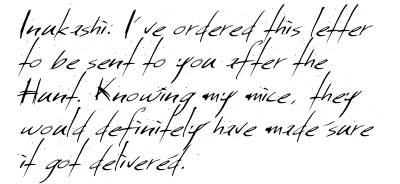 Inukashi: I've ordered this letter
to be sent to you after the
Hunt. Knowing my mice, they
would definitely have made sure
it got delivered.